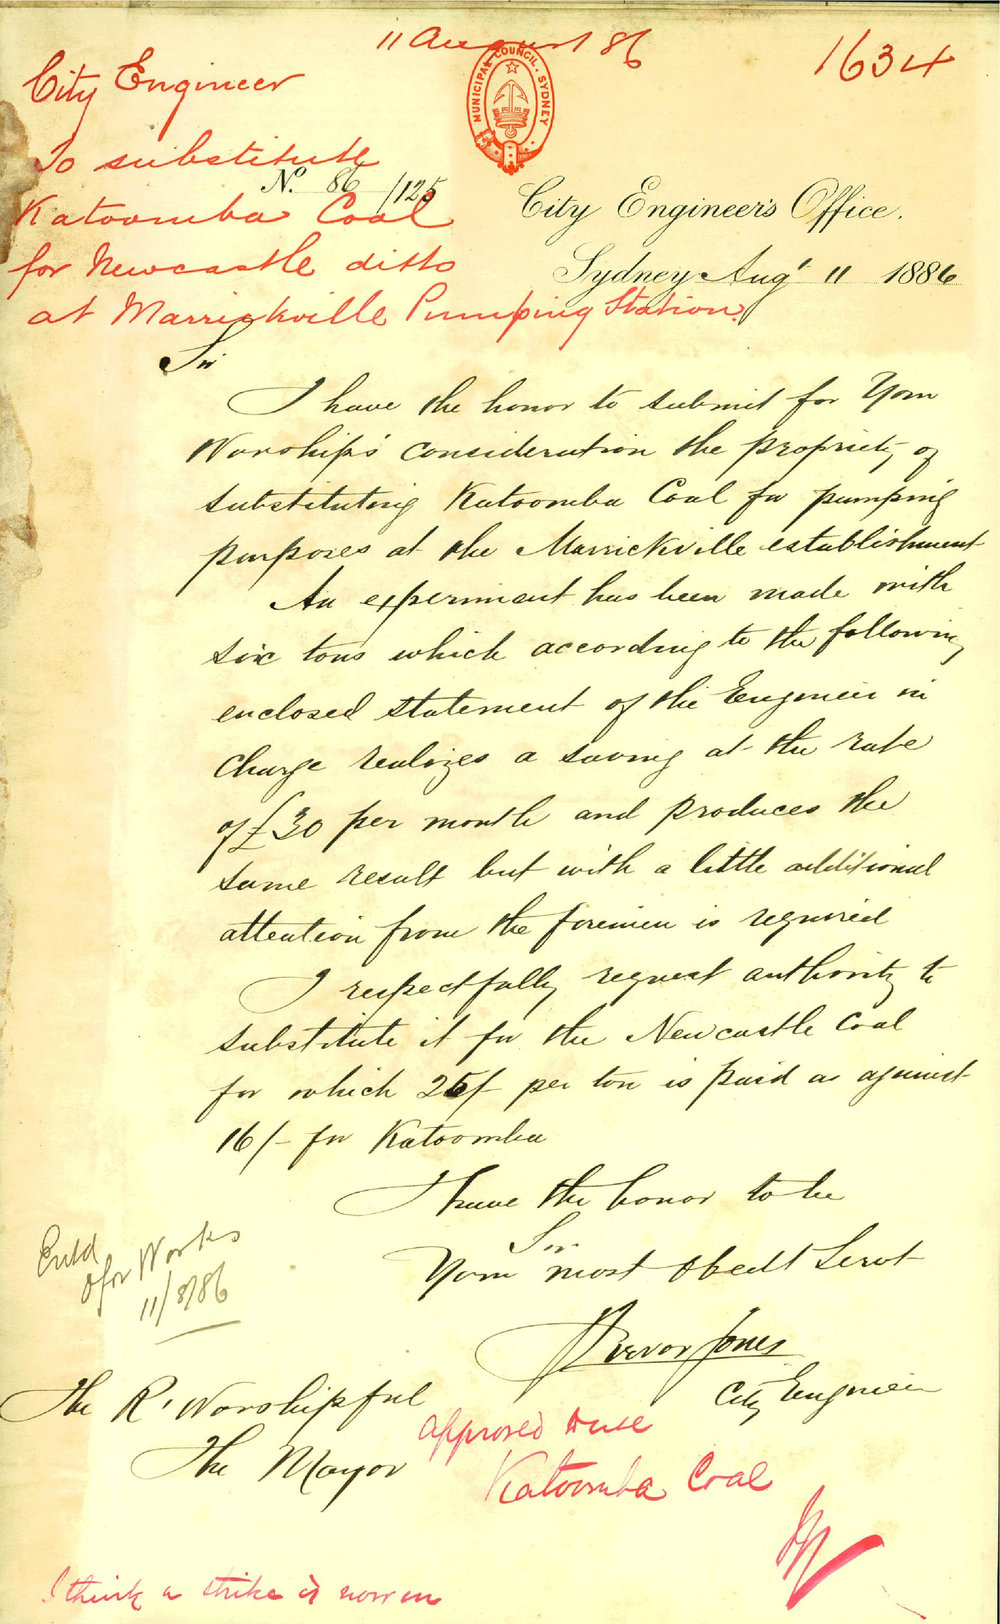 11 August 86
1634
MUNICIPAL COUNCIL. SYDNEY
City Engineer
To substitute
Katoomba Coal
for Newcastle ditto
at Marrickville Pumping Station.
No. 86/125
City Engineer's Office.
Sydney Augt 11 1886
Sir
I have the honor to submit for Your
Worship's consideration the propriety of
substituting Katoomba Coal for pumping
purposes at the Marrickville establishment
An experiment has been made with
six tons which according to the following
enclosed statement of the Engineer in
charge realizes a saving at the rate
of £30 per month and produces the
same result but with a little additional
attention from the firemen is required
I respectfully request authority to
substitute it for the Newcastle Coal
for which 25/ per ton is paid as against
16/- for Katoomba
I have the honor to be
Sir
Your most Obedt Servt
Trevor Jones
City Engineer
Entd
for Works
11/8/86
The R. Worshipful
The Mayor
approved
Katoomba Coal
I think a strike is now on